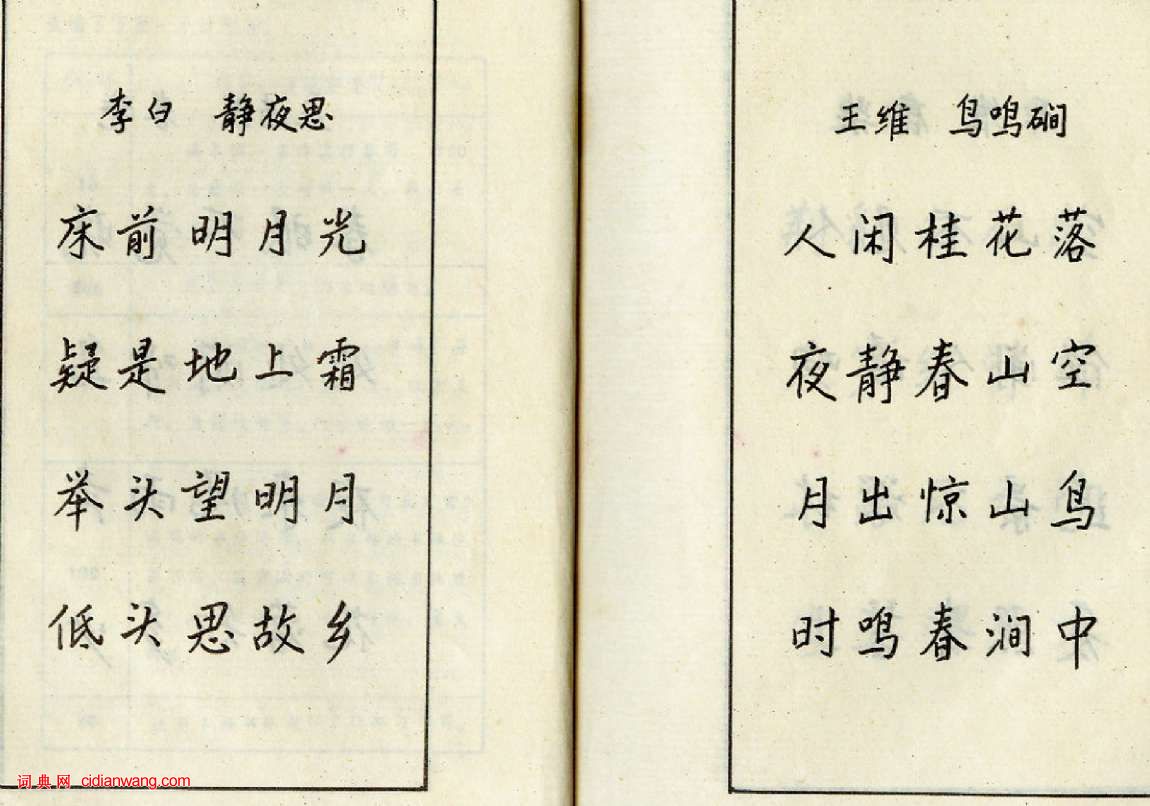 李白 静夜思
床前明月光
疑是地上霜
举头望明月
低头思故乡
王维 鸟鸣磵
人闲桂花落
夜静春山空
月出惊山鸟
时鸣春涧中
词典网 cidianwang.com